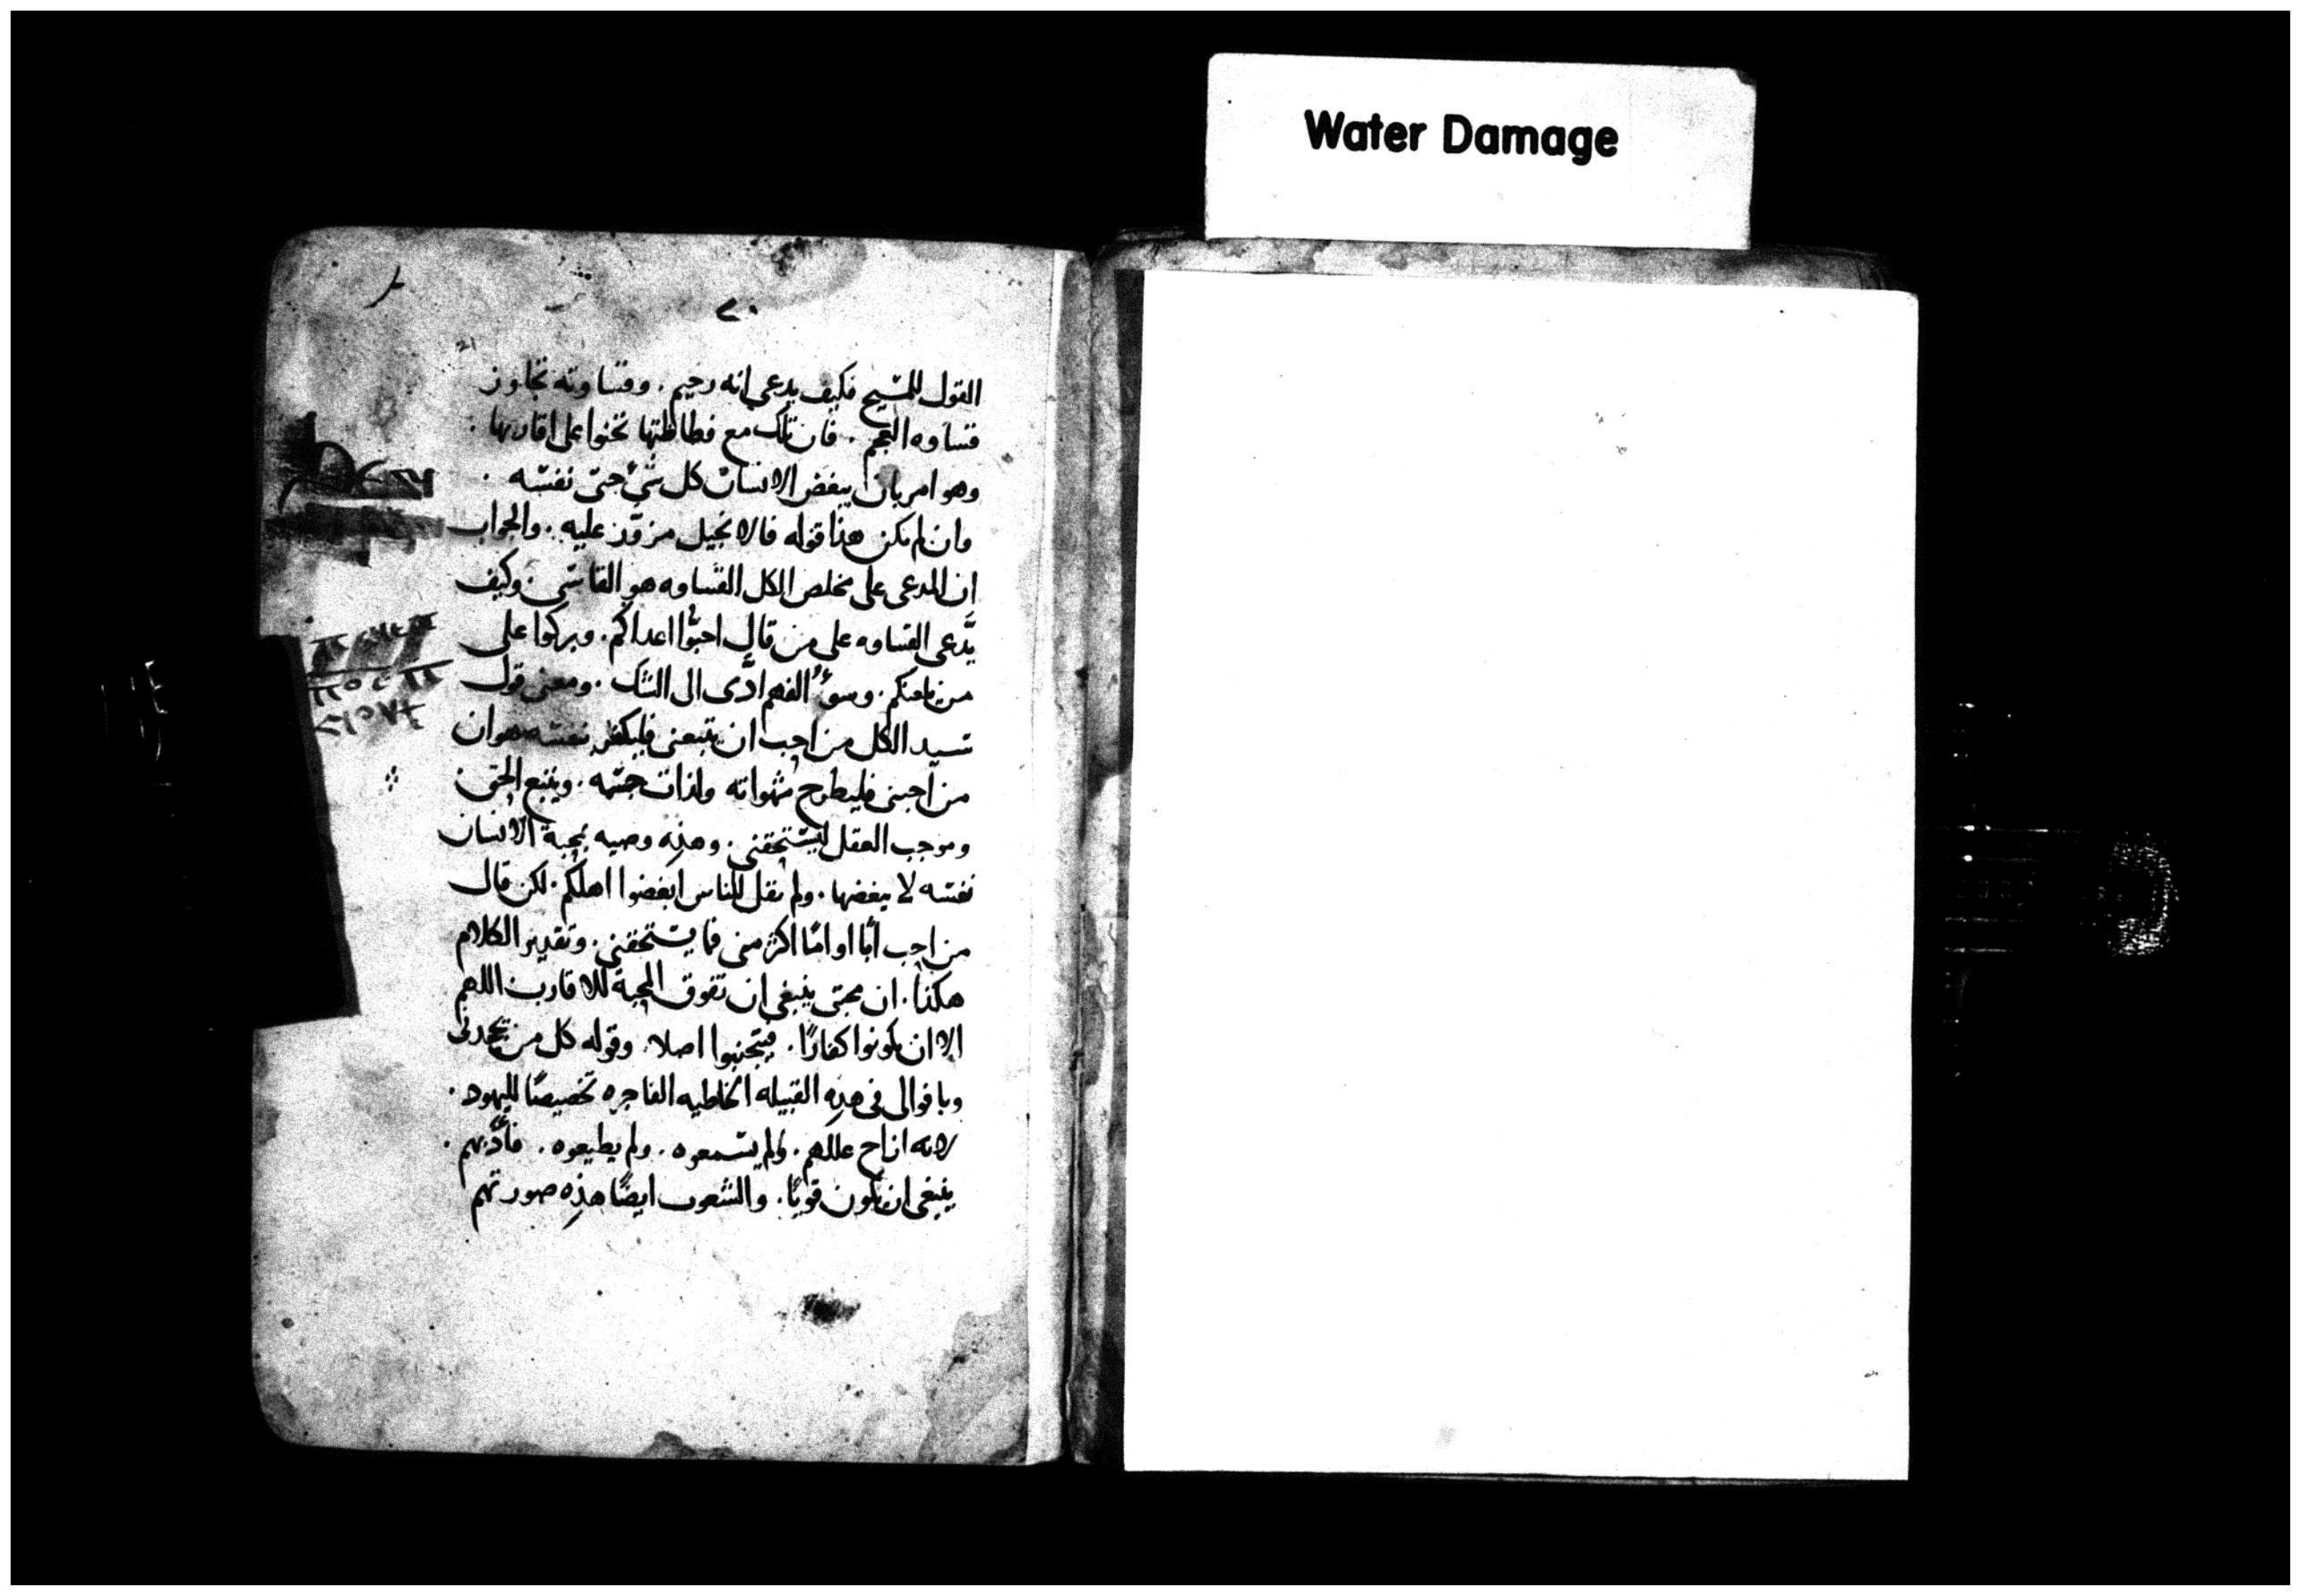 Water Damage
٢٠
21
القول للمسيح فكيف يدعى انه رحيم . وقساوته تجاوز
قساوه العجم . فان تلك مع فظاظتها تحنوا على اقاربها :
وهو امر بان يبغض الانسان كل شيء حتى نفسه .
وان لم يكن هذا قوله فالانجيل مزوّر عليه . والجواب
ان المدعى على مخلص الكل القساوه هو القاسى . وكيف
يدَّعى القساوه على من قال احبّوا اعداكم . وبركوا على
من يلعنكم . وسوء الفهم ادَّى الى الشك . ومعنى قول
سيد الكل من احب ان يتبعنى فليكفر بنفسه هو ان
من احبنى فليطرح شهواته ولذات جسمه . ويتبع الحق
وموجب العقل ليستحقنى . وهذه وصيه بمحبة الانسان
نفسه لا يبغضها . ولم يقل للناس ابغضوا اهلكم . لكن قال
من احب أبًا او امًا اكثر منى فما يستحقنى . وتقدير الكلام
هكذا . ان محبتى ينبغى ان تفوق المحبة للاقارب اللهم
الا ان يكونوا كفارًا . فيتجنبوا اصلا . وقوله كل من يجحدنى
وباقوالى فى هذه القبيله الخاطيه الفاجره تخصيصًا لليهود .
لانه ازاح عللهم . ولم يسمعوه . ولم يطيعوه . فأدَّبهم .
ينبغى ان يكون قويًا . والشعوب ايضًا هذه صورتهم